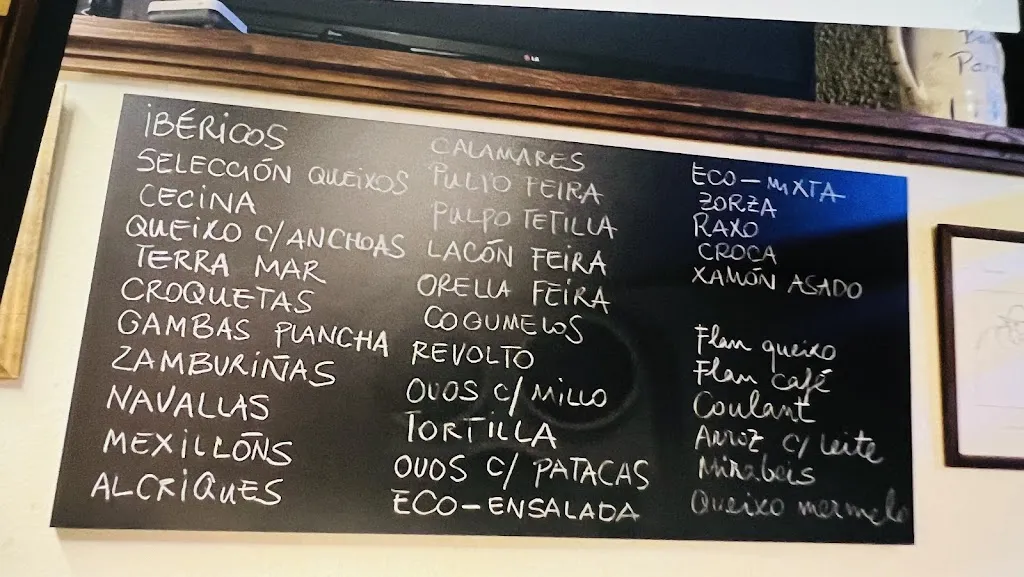 LG
IBÉRICOS
SELECCIÓN QUEIXOS
CECINA
QUEIXO C/ANCHOAS
TERRA MAR
CROQUETAS
GAMBAS PLANCHA
ZAMBURIÑAS
NAVALLAS
MEXILLÓNS
ALCRIQUES
CALAMARES
PULPO FEIRA
PULPO TETILLA
LACÓN FEIRA
ORELLA FEIRA
COGUMELOS
REVOLTO
OVOS C/MILLO
TORTILLA
OVOS C/ PATACAS
ECO-ENSALADA
ECO-MIXTA
ZORZA
RAXO
CROCA
XAMÓN ASADO
Flan queixo
Flan café
Coulant
Arroz c/ leite
Mirabeis
Queixo mermelo